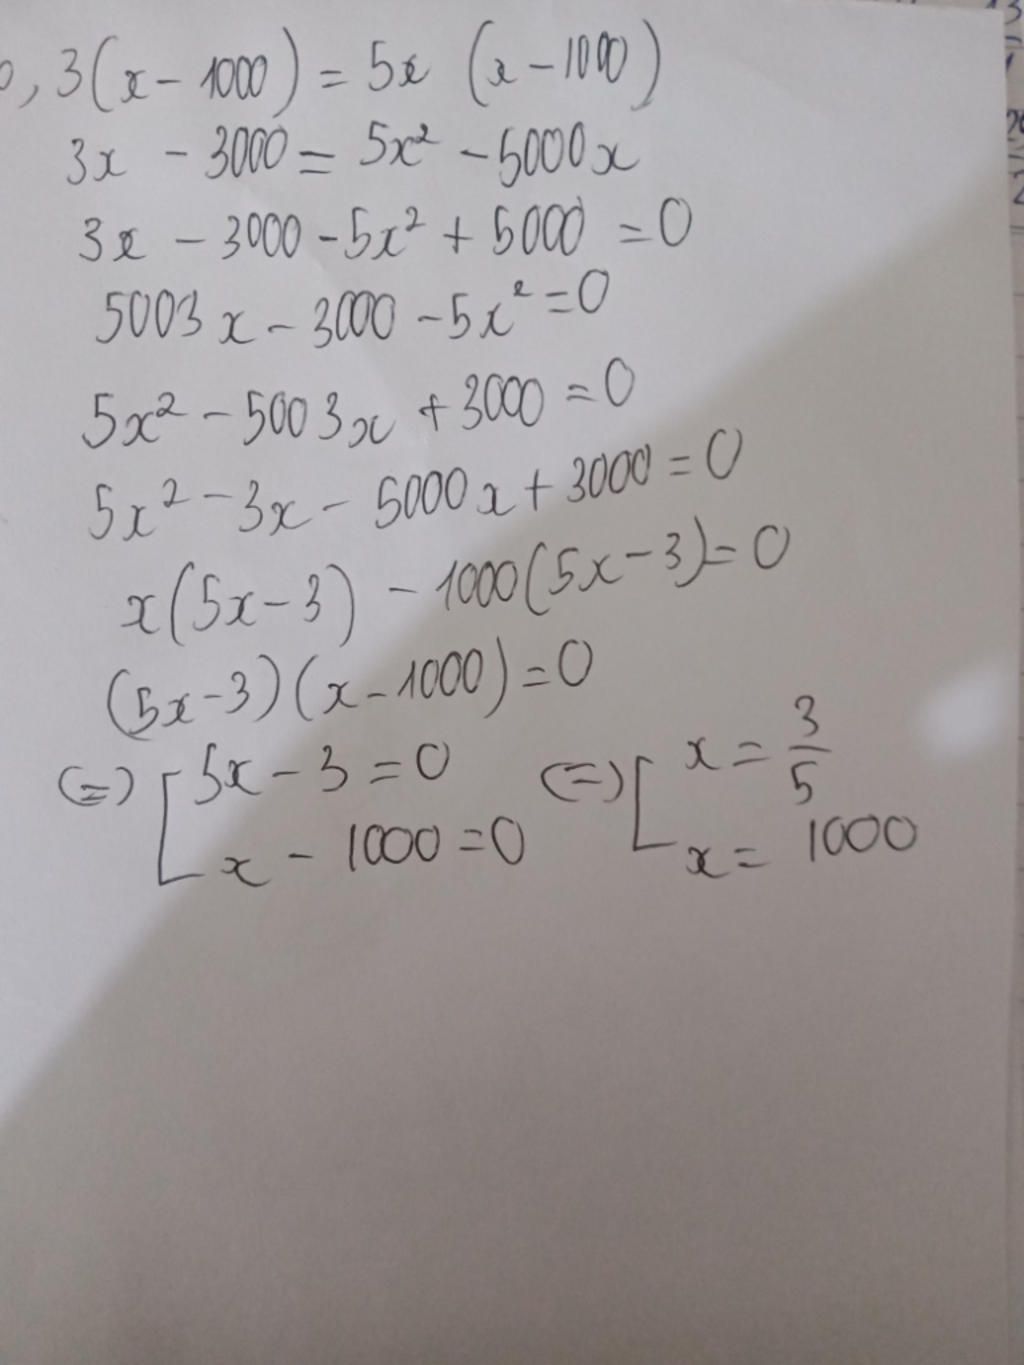 , 3(x - 1000) = 5x (x - 1000)
3x - 3000 = 5x² - 5000x
3x - 3000 - 5x² + 5000 = 0
5003x - 3000 - 5x² = 0
5x² - 5003x + 3000 = 0
5x² - 3x - 5000x + 3000 = 0
x(5x - 3) - 1000(5x - 3) = 0
(5x - 3)(x - 1000) = 0
(=) [ 5x - 3 = 0 (=) [ x = 3/5
x - 1000 = 0 x = 1000